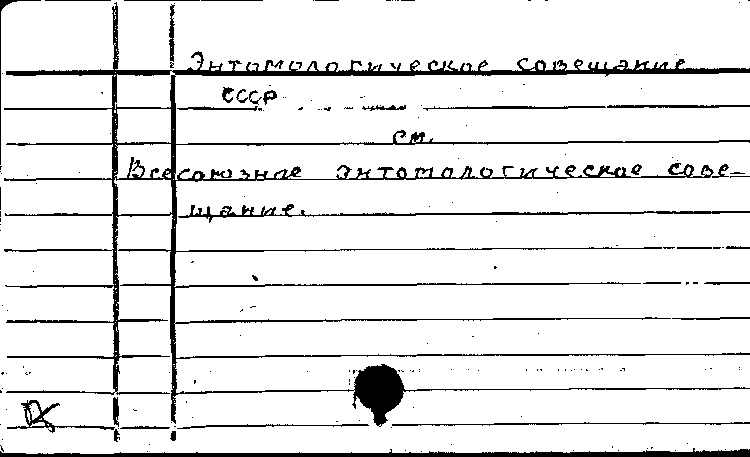 Энтомологическое совещание
СССР
см.
Всесоюзное энтомологическое сове-
щание.